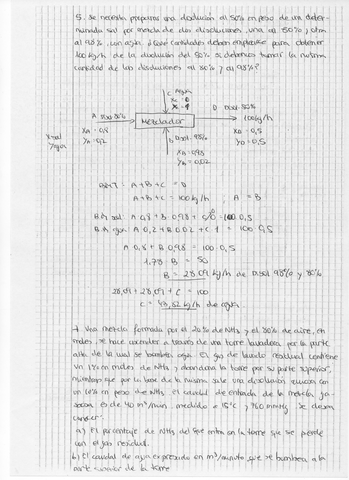 5. Se necesita preparar una disolución al 50% en peso de una deter-
minada sal por mezcla de dos disoluciones, una al 80%, otra
al 98%, con agua. ¿Qué cantidades deben emplearse para obtener
100 kg/h de la disolución del 50% si debemos tomar la misma
cantidad de las disoluciones al 80% y al 98%?
C Agua
Xc = 0
Yc = 1
A Disol 80%
D Disol. 50%
Mezclador
100 kg/h
X=sal
Y=agua
XA = 0,8
YA = 0,2
B Disol. 98%
XB = 0,98
YB = 0,02
XD = 0,5
YD = 0,5
B.M.T = A + B + C = D
A + B + C = 100 kg/h ; A = B
B.M. sal: A 0,8 + B 0,98 + C/0 = 100 0,5
B.M. agua: A 0,2 + B 0,02 + C 1 = 100 0,5
A 0,8 + B 0,98 = 100 · 0,5
1,78 B = 50
B = 28,09 kg/h de Disol 98% y 80%
28,09 + 28,09 + C = 100
C = 43,82 kg/h de agua.
Una mezcla formada por el 20% de NH3 y el 80% de aire, en
moles, se hace ascender a través de una torre lavadora por la parte
alta de la cual se bombea agua. El gas de lavado residual contiene
un 1% en moles de NH3 y abandona la torre por su parte superior,
mientras que por la base de la misma sale una disolución acuosa con
un 10% en peso de NH3. El caudal de entrada de la mezcla ga-
seosa es de 40 m³/min. medidos a 15°C y 760 mmHg. Se desea
conocer:
a) El porcentaje de NH3 del que entra en la torre que se pierde
en el gas residual.
b) El caudal de agua expresado en m³/minuto que se bombea a la
parte superior de la torre